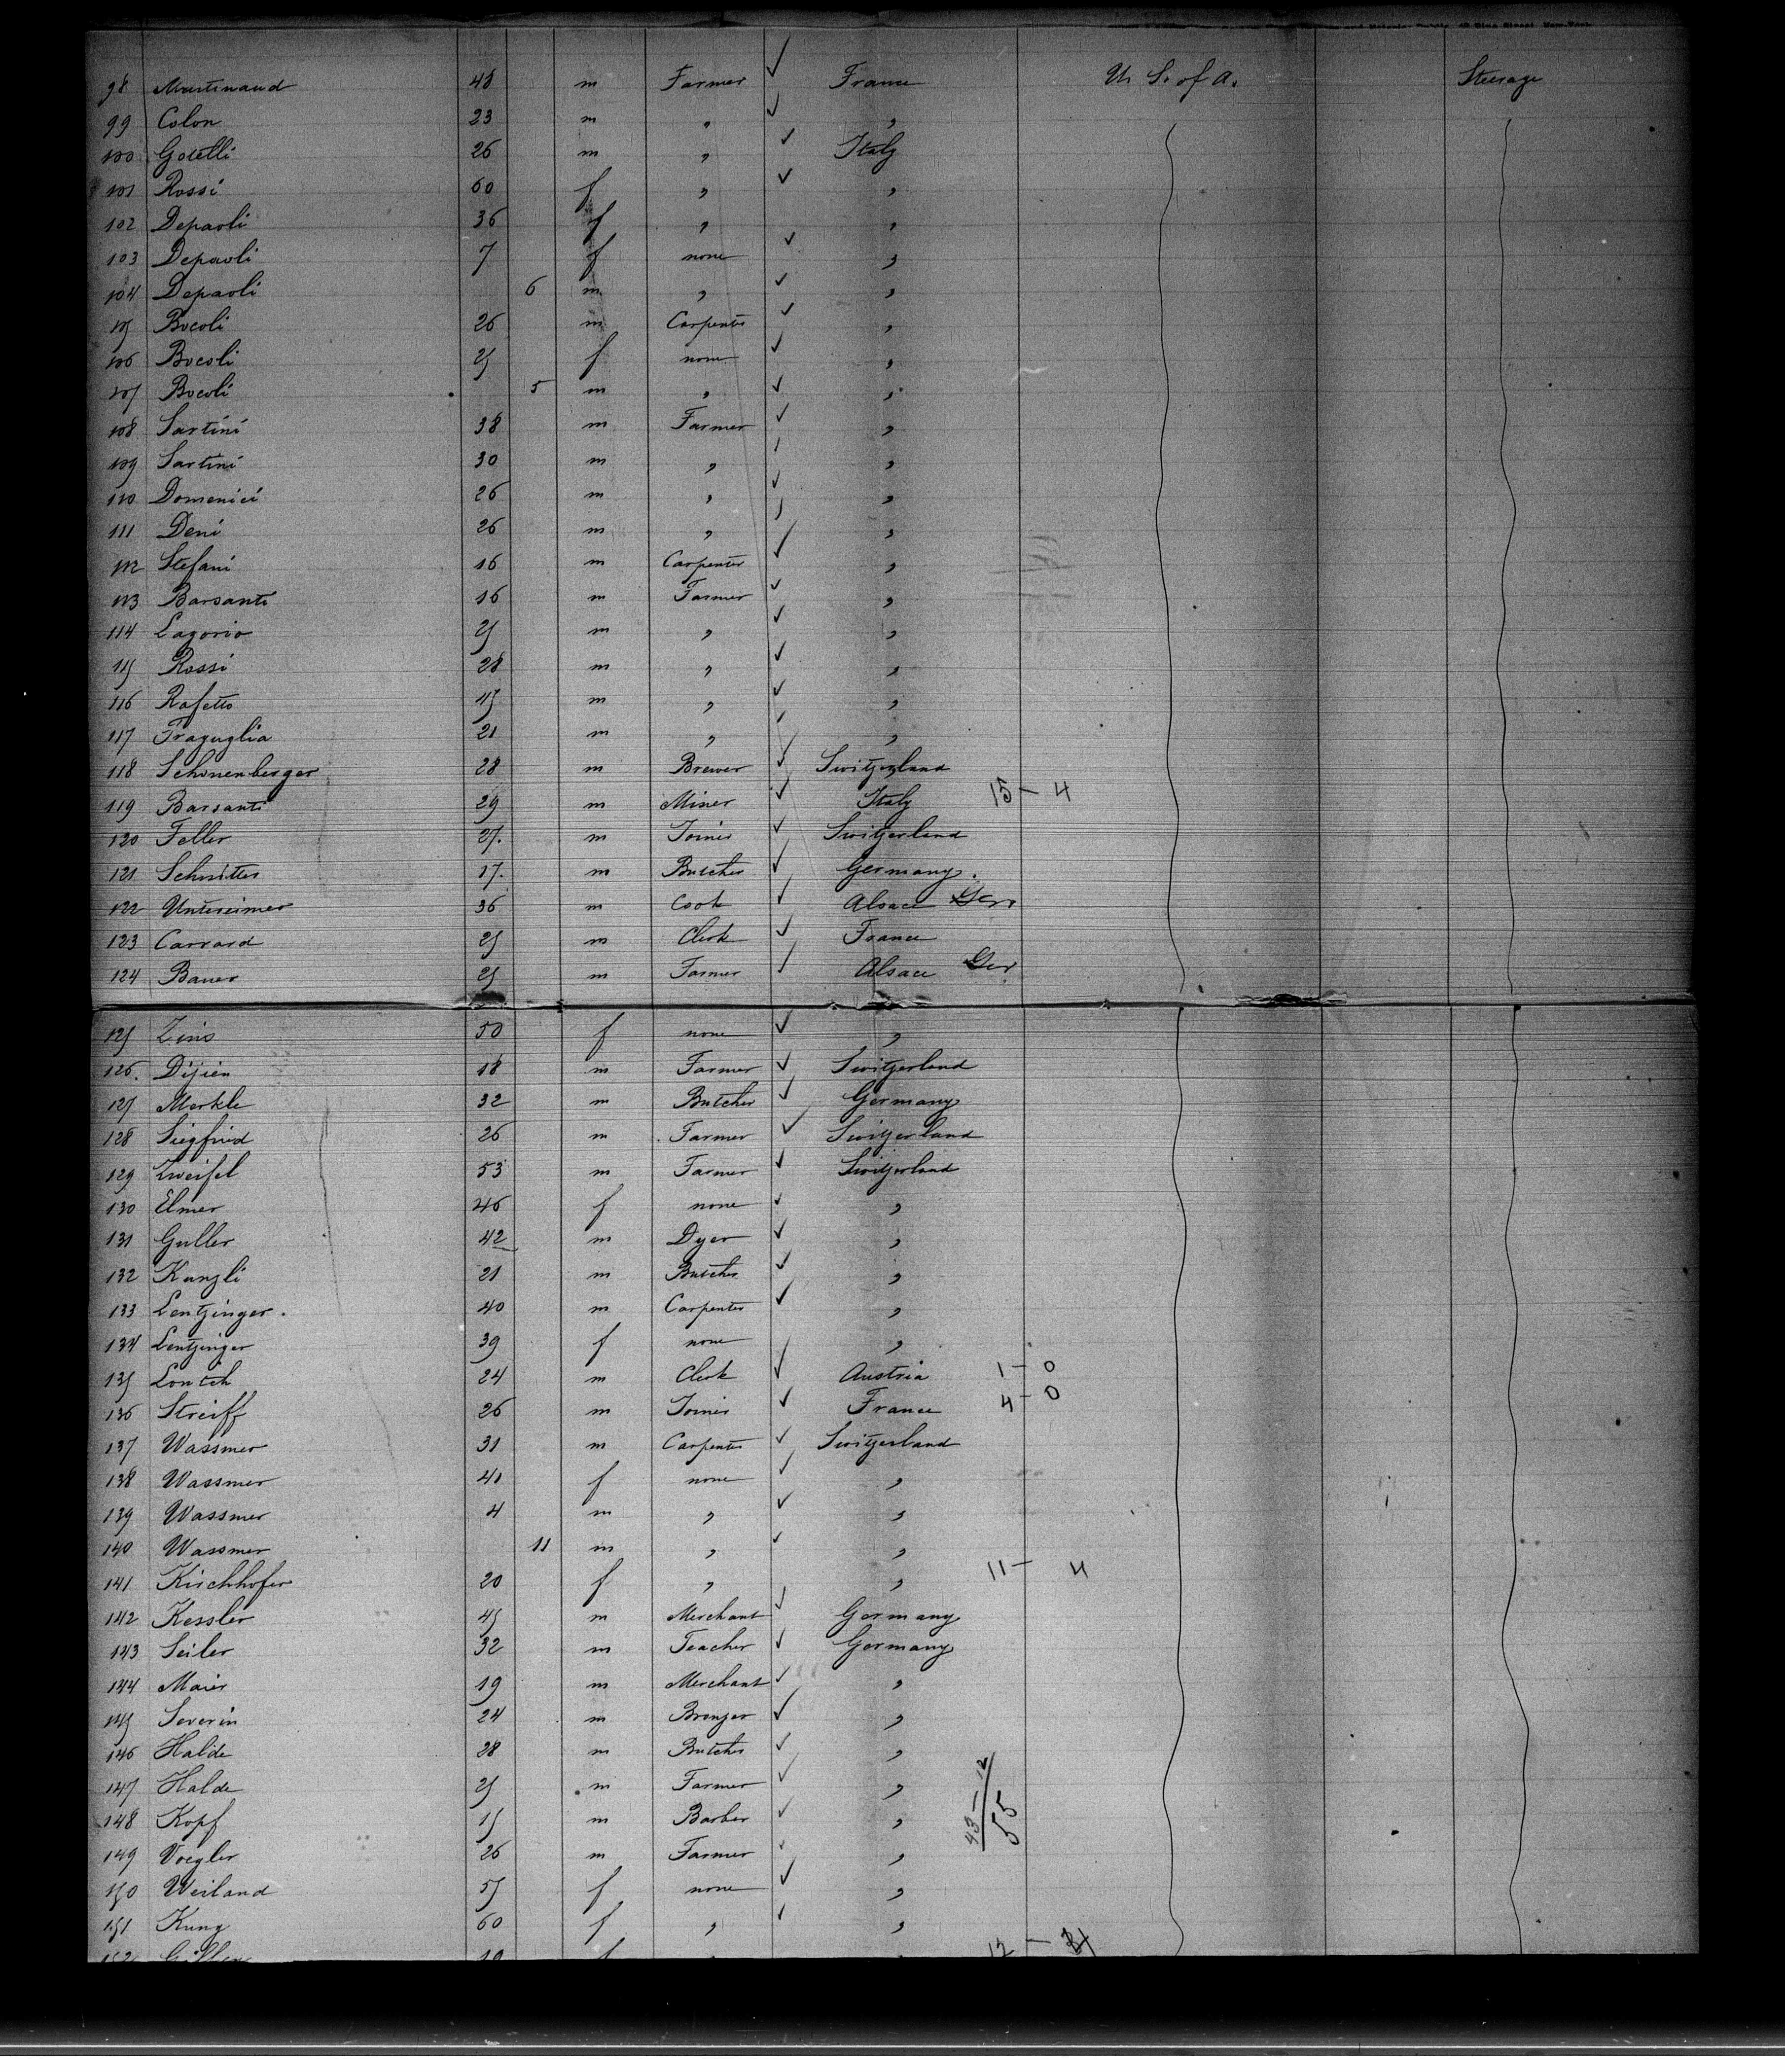 98 Martinaud 48 m Farmer ✓ France U. S. of A. Steerage
99 Colon 23 m " ✓ "
100 Gotelli 26 m " ✓ Italy
101 Rossi 60 f " ✓ "
102 Depaoli 36 f " "
103 Depaoli 7 f none ✓ "
104 Depaoli 6 m " ✓ "
105 Bocoli 26 m Carpenter ✓ "
106 Bocoli 25 f none ✓ "
107 Bocoli 5 m " ✓ "
108 Sartini 38 m Farmer ✓ "
109 Sartini 30 m " ✓ "
110 Domenici 26 m " ✓ "
111 Deni 26 m " ✓ "
112 Stefani 16 m Carpenter ✓ "
113 Barsanti 16 m Farmer ✓ "
114 Lagorio 25 m " ✓ "
115 Rossi 28 m " ✓ "
116 Rafetto 45 m " ✓ "
117 Fraguglia 21 m " ✓ "
118 Schonenberger 28 m Brewer ✓ Switzerland
119 Barsanti 29 m Miner ✓ Italy 15 - 4
120 Feller 27. m Joiner ✓ Switzerland
121 Schnitter 17. m Butcher ✓ Germany.
122 Untereimer 36 m Cook ✓ Alsace Ger
123 Carrard 25 m Clerk ✓ France
124 Bauer 25 m Farmer ✓ Alsace Ger
125 Zins 50 f none ✓ "
126. Dijien 18 m Farmer ✓ Switzerland
127 Merkle 32 m Butcher ✓ Germany
128 Siegfried 26 m Farmer ✓ Switzerland
129 Zweifel 53 m Farmer ✓ Switzerland
130 Elmer 46 f none ✓ "
131 Guller 42 m Dyer ✓ "
132 Kunzli 21 m Butcher ✓ "
133 Lentzinger. 40 m Carpenter ✓ "
134 Lentzinger 39 f none ✓ "
135 Lontch 24 m Clerk ✓ Austria 1 - 0
136 Streiff 26 m Joiner ✓ France 4 - 0
137 Wassmer 31 m Carpenter ✓ Switzerland
138 Wassmer 41 f none ✓ "
139 Wassmer 4 m " ✓ "
140 Wassmer 11 m " ✓ "
141 Kirchhofer 20 f " " 11 - 4
142 Kessler 45 m Merchant ✓ Germany
143 Seiler 32 m Teacher ✓ Germany
144 Maier 19 m Merchant ✓ "
145 Severin 24 m Bronzer ✓ "
146 Halde 28 m Butcher ✓ "
147 Halde 25 m Farmer ✓ "
148 Kopf 15 m Barber ✓ " 43 - 12 55
149 Voegler 26 m Farmer ✓ "
150 Weiland 55 f none ✓ "
151 Kung 60 f " ✓ "
152 19 12 -